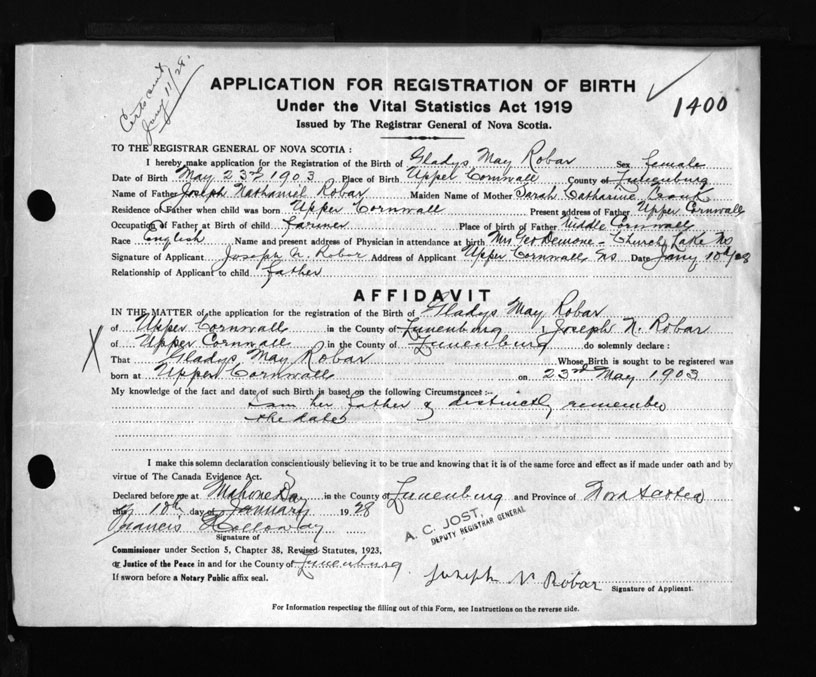 Certs and
Jany 11/28.
APPLICATION FOR REGISTRATION OF BIRTH
1400
Under the Vital Statistics Act 1919
Issued by The Registrar General of Nova Scotia.
TO THE REGISTRAR GENERAL OF NOVA SCOTIA :
I hereby make application for the Registration of the Birth of Gladys May Robar Sex Female
Date of Birth May 23rd 1903 Place of Birth Upper Cornwall County of Lunenburg
Name of Father Joseph Nathaniel Robar Maiden Name of Mother Sarah Catharine
Residence of Father when child was born Upper Cornwall Present address of Father Upper Cornwall
Occupation of Father at Birth of child Farmer Place of birth of Father Middle Cornwall
Race English Name and present address of Physician in attendance at birth Mrs Geo Demone - Church Lake NS
Signature of Applicant Joseph N. Robar Address of Applicant Upper Cornwall NS Date Jany 10th/28
Relationship of Applicant to child Father
AFFIDAVIT
IN THE MATTER of the application for the registration of the Birth of Gladys May Robar
of Upper Cornwall in the County of Lunenburg I, Joseph N. Robar
X
of Upper Cornwall in the County of Lunenburg do solemnly declare :
That Gladys May Robar Whose Birth is sought to be registered was
born at Upper Cornwall on 23rd May 1903
My knowledge of the fact and date of such Birth is based on the following Circumstances :-
I am her father & distinctly remember
the date
I make this solemn declaration conscientiously believing it to be true and knowing that it is of the same force and effect as if made under oath and by
virtue of The Canada Evidence Act.
Declared before me at Mahone Bay in the County of Lunenburg and Province of Nova Scotia
this 10th day of January 1928
Francis Holloway
A. C. JOST,
DEPUTY REGISTRAR GENERAL
Signature of
Commissioner under Section 5, Chapter 38, Revised Statutes, 1923,
or Justice of the Peace in and for the County of Lunenburg
If sworn before a Notary Public affix seal.
Joseph N Robar
Signature of Applicant.
For Information respecting the filling out of this Form, see Instructions on the reverse side.